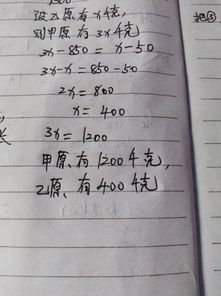 设乙原有x千克,
则甲原有3x千克
3x-850=x-50
3x-x=850-50
2x=800
x=400
3x=1200
甲原有1200千克,
乙原有400千克